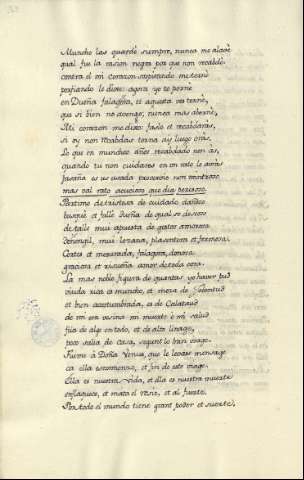 Muncho las guardé siempre, nunca me alabé
qual fue la rasón negra por que non recabdé,
contra el mi corazon suspirando me torné
porfiando le dixe: agora yo te porné
en Dueña falaguera, et aquesta vez terné,
que si bien no avengo, nunca mas aberné.
Mi corazon me dixo: faslo et recabdarás,
si oy non recabdas torna ay luego cras.
Lo que en munchos años recabdado non as,
quando tu non cuidares en un rato lo avrás
fasaña es usada proverbio non mintroso
mas val rato acucioso que dia peresoso.
Partime de tristesa de cuidado dañoso
busqué et fallé dueña de qual so deseoso
de talle muy apuesta de gestos amorosa
doñengil, muy lozana, plasentera et fermosa.
Cortés et mesurada, falaguera, donosa
graciosa et risueña amor de toda cosa.
La mas noble figura de quantas yo haver pud
viuda rica es muncho, et moza de juventud
et bien acostumbrada, es de Calataud
de mi era vesina mi muerte è mi salud
fija de algo en todo, et de alto linage,
poco salia de casa, segunt lo han usage.
Fuime à Doña Venus, que le levase mensage
ca ella es comienzo, et fin de este viage.
Ella es nuestra vida, et ella es nuestra muerte
enflaquece, et mata al resio, et al fuerte.
Por todo el mundo tiene grant poder et suerte,